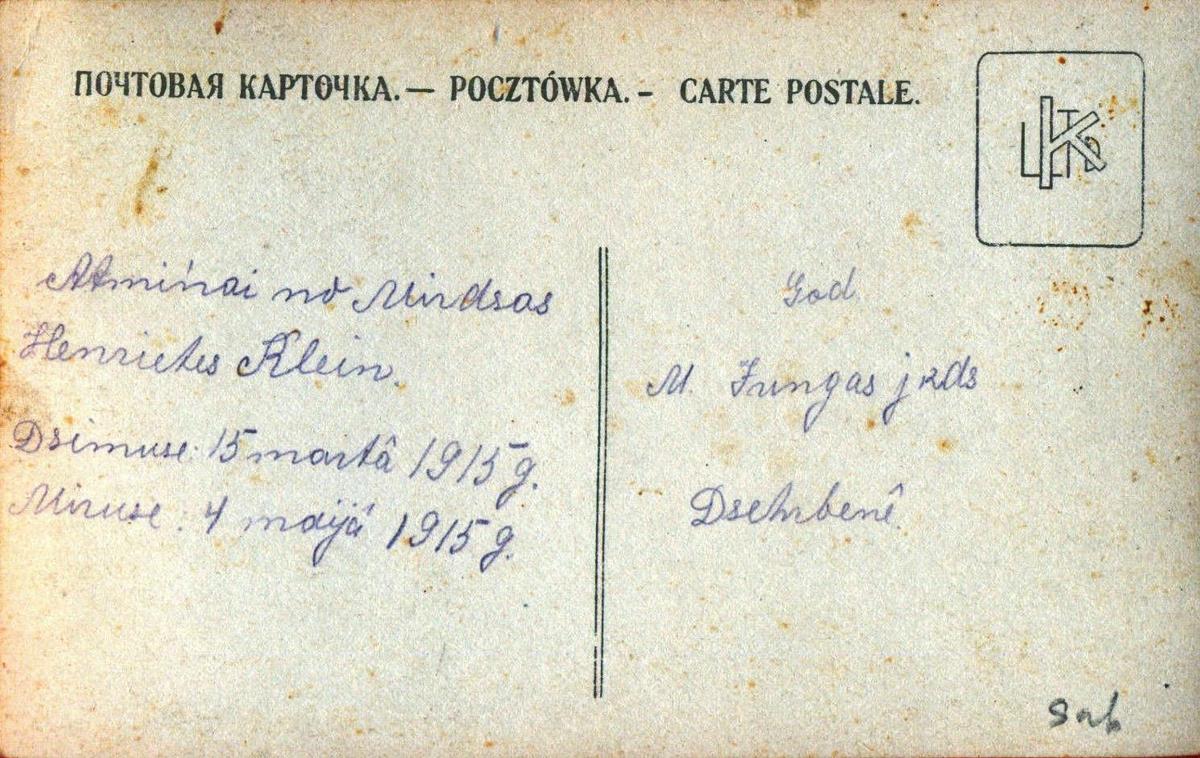 ПОЧТОВАЯ КАРТОЧКА.— POCZTÓWKA.- CARTE POSTALE.
Atmiņai no Mirdsas
Henrietes Klein.
Dsimuse: 15 martâ 1915 g.
Miruse: 4 maijâ 1915 g.
God.
M. Jungas jkds
Dsehrbenê.